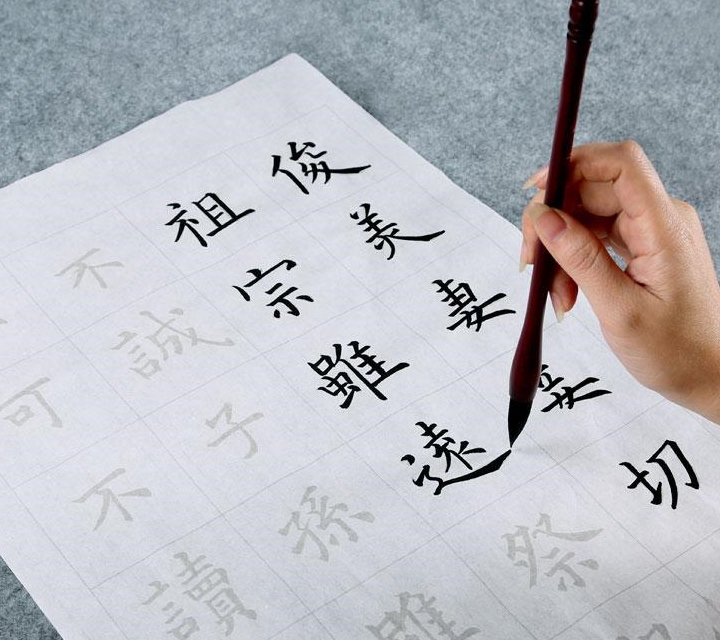 俊美妻妾切
祖宗雖遠祭
不誠子孫雖
可不讀